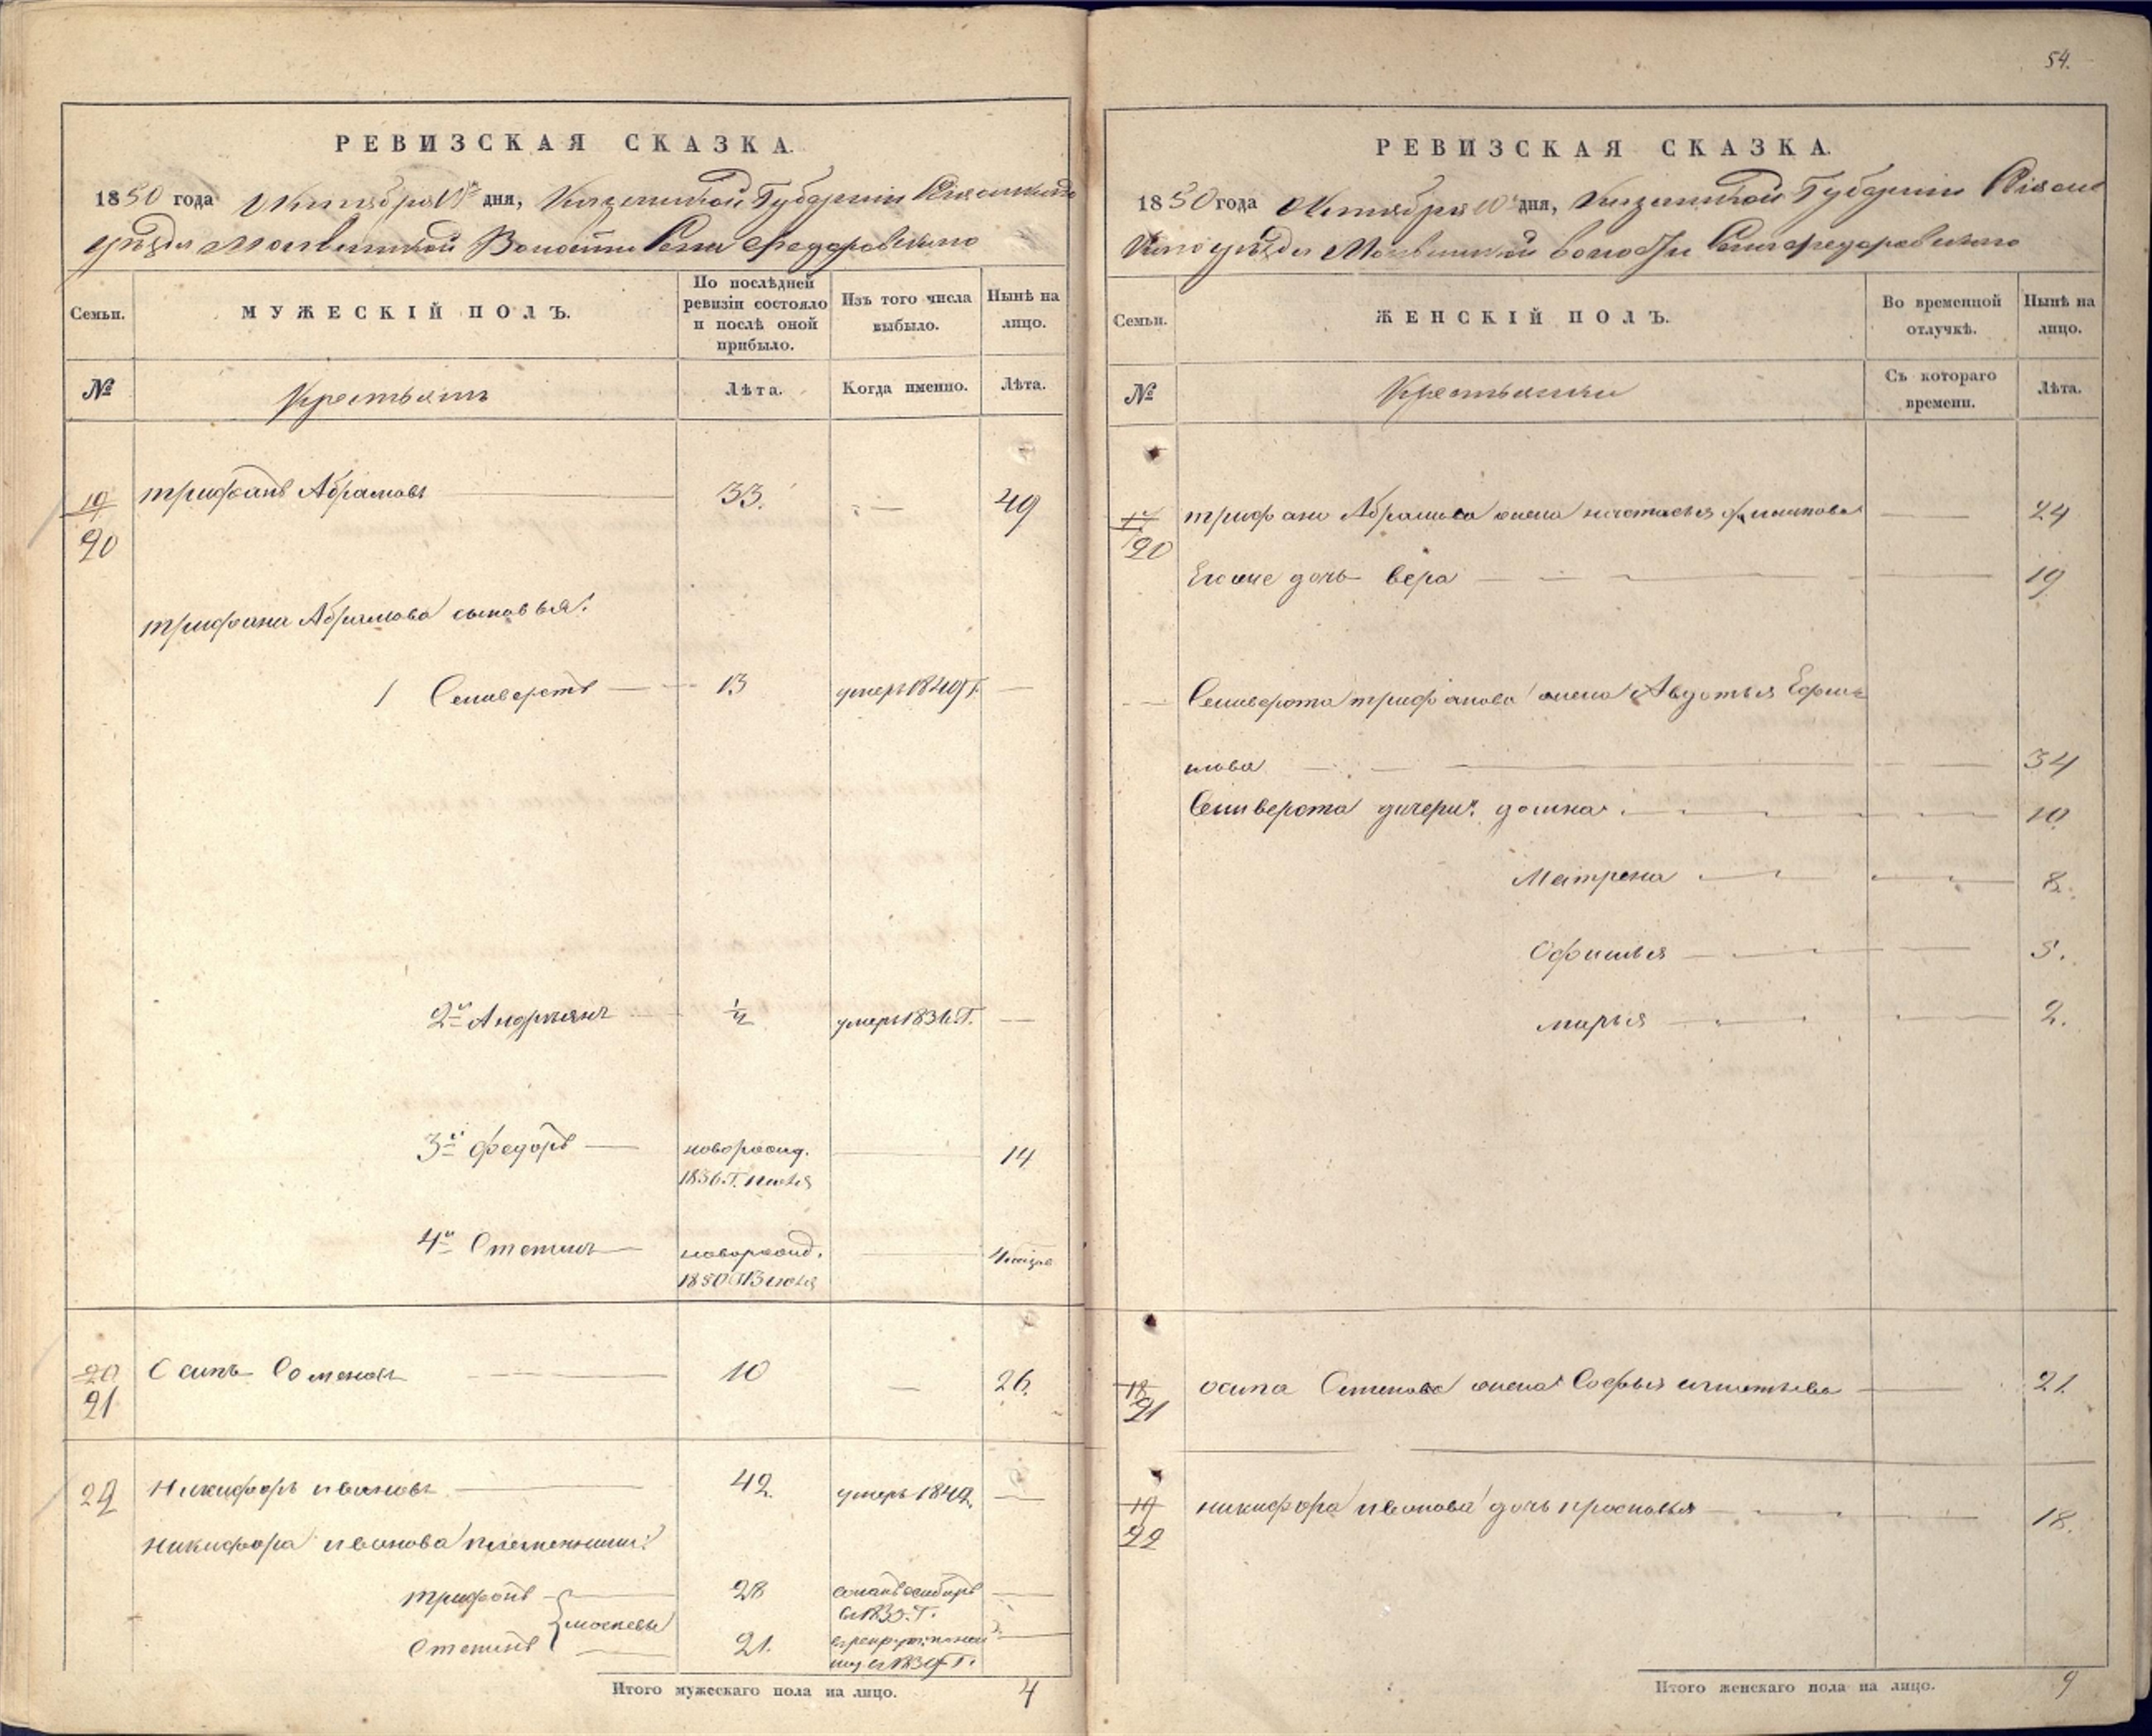 54.
РЕВИЗСКАЯ СКАЗКА.
1850 года Октября 10го дня, Казанской Губернiи
уѣзда Волости Села Федоровскаго
Семьи.
МУЖЕСКІЙ ПОЛЪ.
По послѣдней ревизіи состояло и послѣ оной прибыло.
Изъ того числа выбыло.
Нынѣ на лицо.
№
Крестьянъ
Лѣта.
Когда именно.
Лѣта.
19
20
трифанъ Абрамовъ 33. 49
трифана Абрамова сыновья:
1 Селиверстъ 13 умеръ 1849 Г.
2й Андрианъ ½ умеръ 1836. Г.
3й Федоръ новорожд. 14
1836. Г. июня
4й Степанъ новорожд. 4
1850
20
21
Осипъ Семеновъ 10 26.
22
Никифоръ ивановъ 42. умеръ 1842
Никифора иванова племянники:
трифонъ 28
моисеевы
Степанъ 21.
Итого мужескаго пола на лицо. 4
РЕВИЗСКАЯ СКАЗКА.
1850 года Октября 10го дня, Казанской Губернiи
уѣзда волости Села Федоровскаго
Семьи.
ЖЕНСКІЙ ПОЛЪ.
Во временной отлучкѣ.
Нынѣ на лицо.
№
Крестьянки
Съ котораго времени.
Лѣта.
17
20
трифана Абрамова жена настасья 24
Егоже дочь вера 19
Селиверста трифанова жена Авдотья Ефим
мова 34
Селиверста дочери: домна 10
Матрена 8.
Офимья 5.
марья 2.
18
21
осипа Семенова жена Софья игнатьева 21
19
22
никифора иванова дочь просковья 18.
Итого женскаго пола на лицо. 9